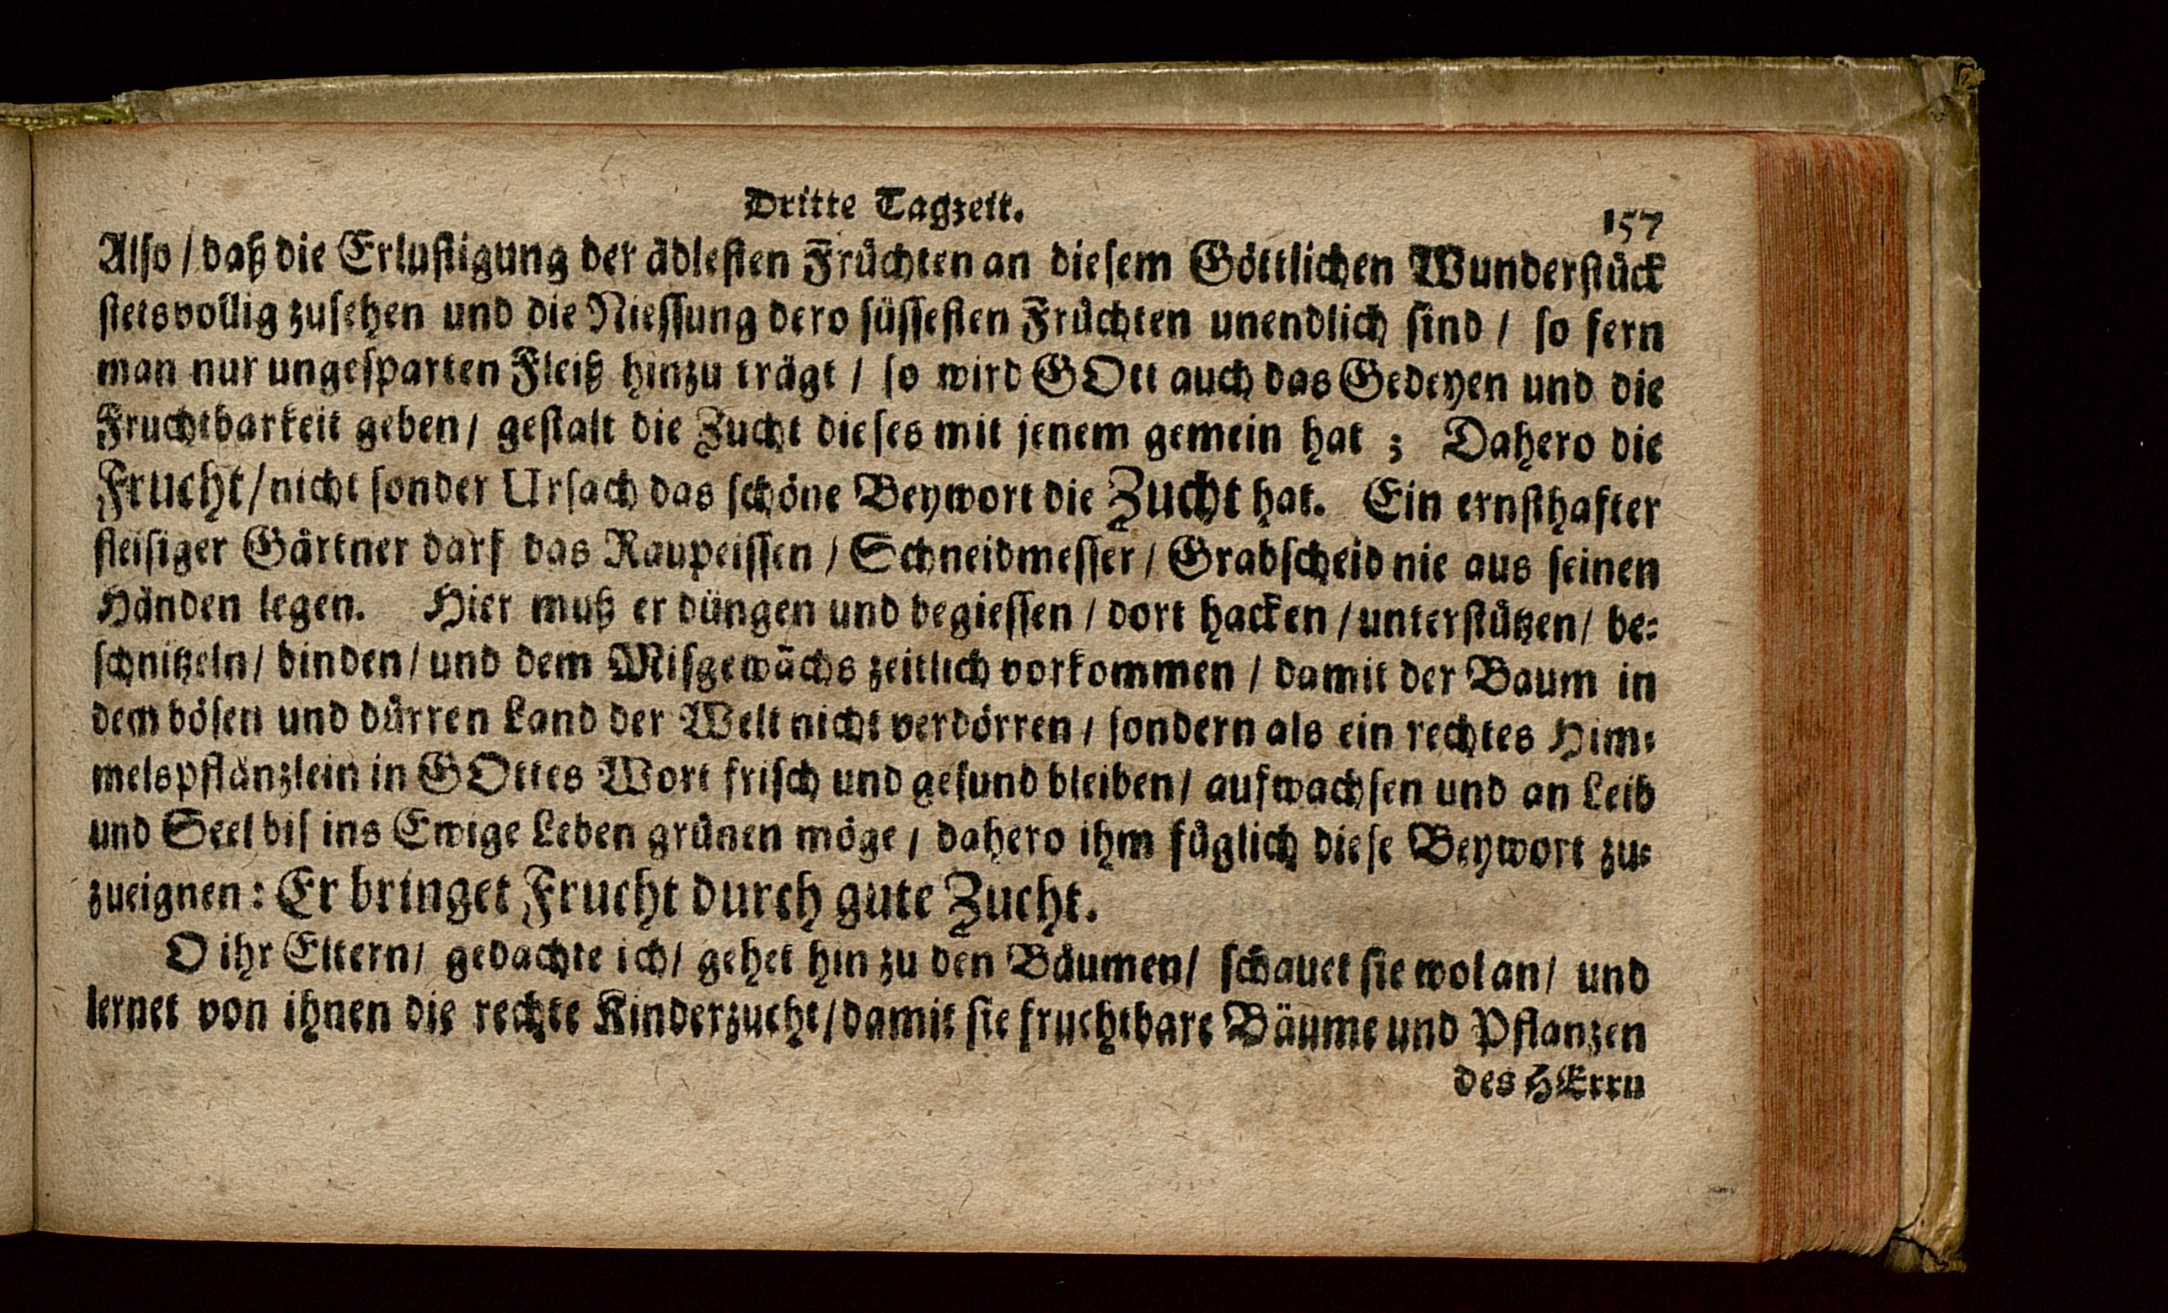 Dritte Tagzeit. 157
Also / daß die Erlustigung der ädlesten Früchten an diesem Göttlichen Wunderstück
stets völlig zusehen und die Niessung dero süssesten Früchten unendlich sind / so fern
man nur ungesparten Fleiß hinzu trägt / so wird GOtt auch das Gedeyen und die
Fruchtbarkeit geben / gestalt die Zucht dieses mit jenem gemein hat ; Dahero die
Frucht / nicht sonder Ursach das schöne Beywort die Zucht hat. Ein ernsthafter
fleisiger Gärtner darf das Raupeissen / Schneidmesser / Grabscheid nie aus seinen
Händen legen. Hier muß er düngen und begiessen / dort hacken / unterstützen / be-
schnitzeln / binden / und dem Misgewächs zeitlich vorkommen / damit der Baum in
dem bösen und dürren Land der Welt nicht verdörren / sondern als ein rechtes Him-
melspflänzlein in GOttes Wort frisch und gesund bleiben / aufwachsen und an Leib
und Seel bis ins Ewige Leben grünen möge / dahero ihm füglich diese Beywort zu-
zueignen : Er bringet Frucht durch gute Zucht.
O ihr Eltern / gedachte ich / gehet hin zu den Bäumen / schauet sie wol an / und
lernet von ihnen die rechte Kinderzucht / damit sie fruchtbare Bäume und Pflanzen
des HErrn